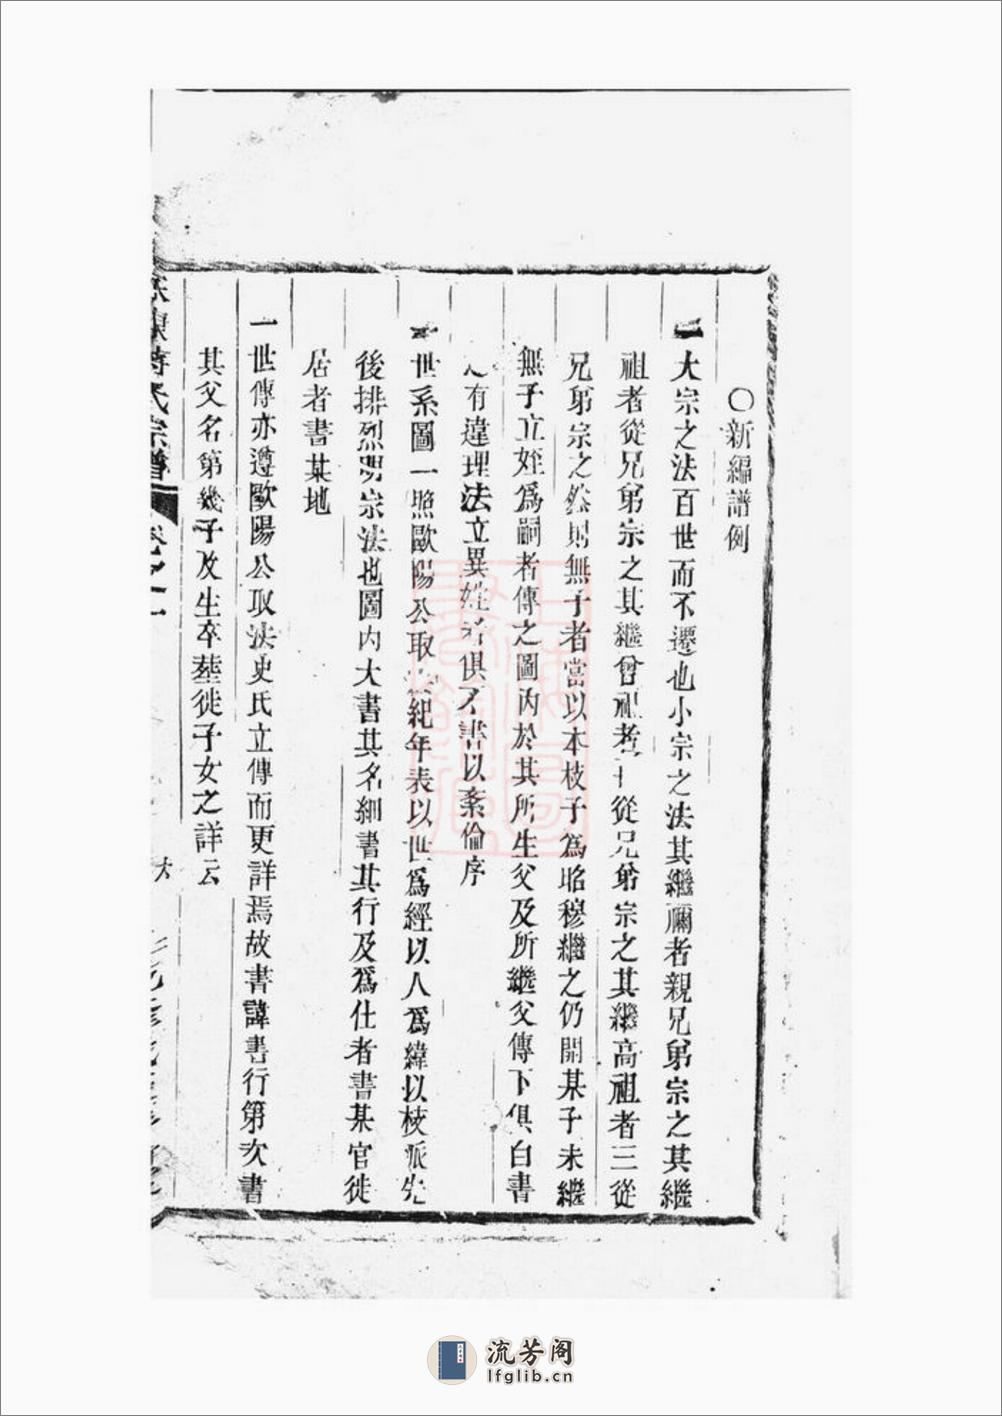 ○新編譜例
一大宗之法百世而不遷也小宗之法其繼禰者親兄弟宗之其繼
祖者從兄弟宗之其繼曾祖者 從兄弟宗之其繼高祖者三從
兄弟宗之然則無子者當以本枝子為昭穆繼之仍開某子未繼
無子立姪為嗣者傳之圖內於其所生父及所繼父傳下俱白書
有違理法立異姓者俱不書以紊倫序
世系圖一照歐陽公取 紀年表以世為經以人為緯以枝派先
後排烈明宗法也圖內大書其名細書其行及為仕者書某官徙
居者書某地
一世傳亦遵歐陽公取法史氏立傳而更詳焉故書諱書行第次書
其父名第幾子及生卒塟徙子女之詳云
氏宗譜 卷之一
流芳阁
lfglib.cn